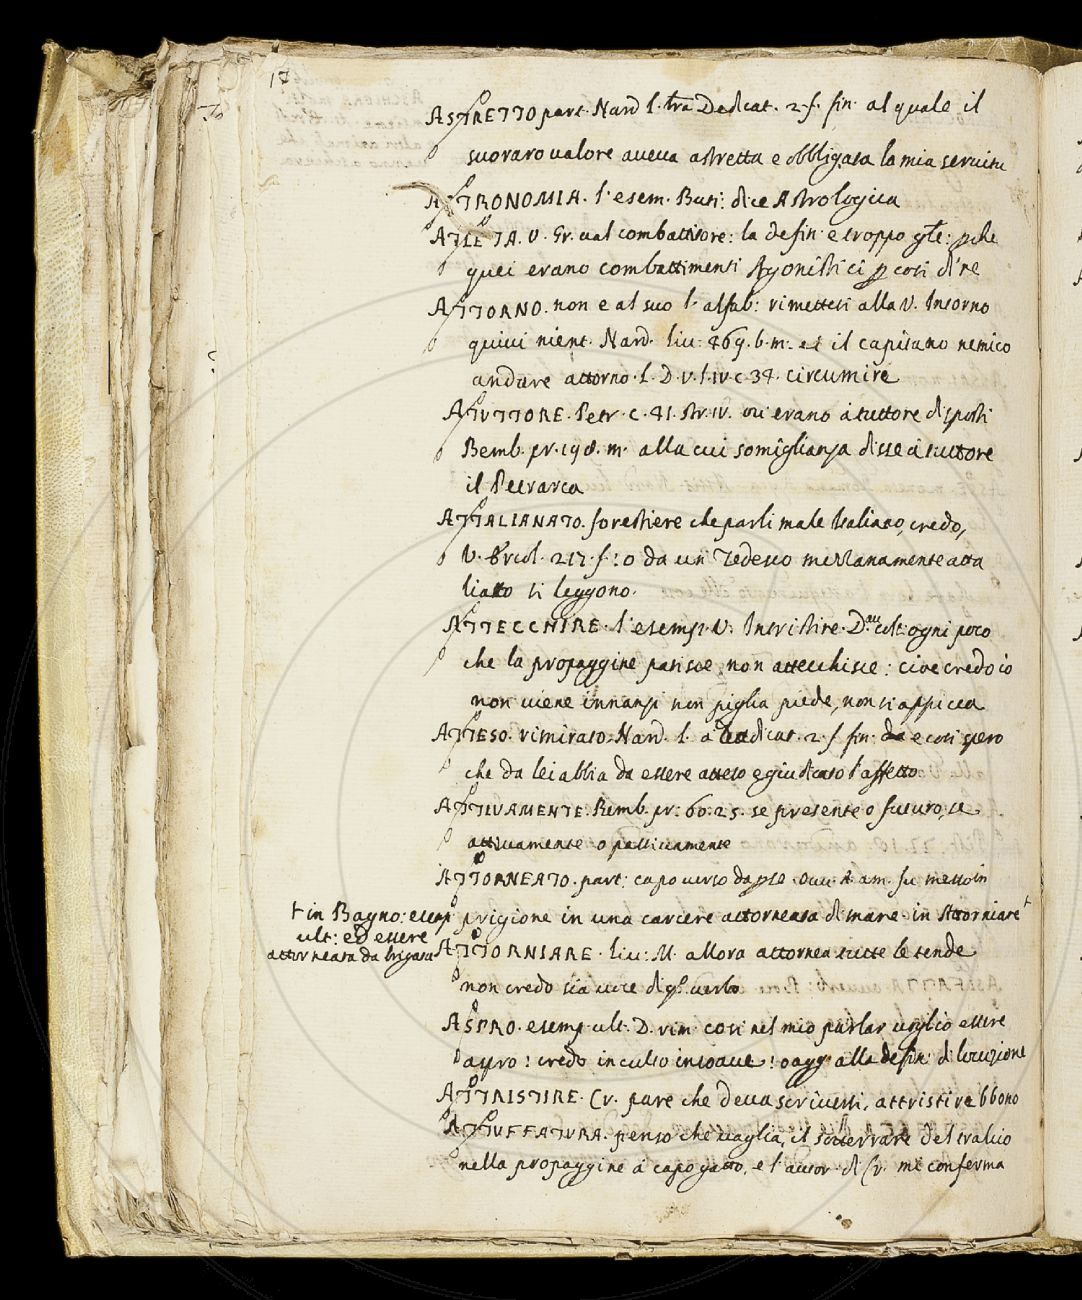 17
ASTRETTO part. Nard l. tra Dedicat. 2. f. fin. al quale il
suo raro valore aveva astretta e obbligata la mia servitù
ASTRONOMIA. l'esem. Buti: dice Astrologica
ATLETA. V. Gr. val combattitore: la defin. e troppo gte: pche
quei erano combattimenti Agonistici p cosi dire
ATTORNO. non e al suo l. alfab: rimettesi alla V. Intorno
quivi nient. Nard. liv: 469. b. m. et il capitano nemico
andare attorno. l. D. V. l. IV. c. 34. circumire
ATUTTORE. Petr. c. 41. str. IV. ovi erano a tuttore disposti
Bemb. pr. 198. m. alla cui somiglianza disse a tuttore
il Petrarca
ATTALIANATO. forestiere che parli male Italiano, credo,
V. Ercol. 217. f: o da un Tedesco mezzanamente atta
liato si leggono.
ATTECCHIRE. l'esemp. V. Intristire. Dau. colt: ogni poco
che la propaggine patisce, non attecchisce: cioe credo io
non viene innanzi non piglia piede, non si appicca
ATTESO. rimirato. Nard. l. a dedicat. 2. f. fin. e cosi spero
che da lei abbia da essere atteso e giudicato l'affetto
ATTIVAMENTE. Bemb. pr: 60. 25. se presente o futuro, se
attivamente o passivamente
ATTORNEATO. part: capoverso da pse. Ovv. R. am. fu messo in
prigione in una carcere attorneata di mare. in Attorniare †
† in Bagno: esemp
ult: ed essere
attorneata da brigata
ATTORNIARE. liv: M. allora attornea tutte le tende
non credo sia voce di qo. verbo
ASPRO. esemp. ult. D. rim. cosi nel mio parlar voglio essere
aspro: credo inculto insoave: o agg. alla defin: di locuzione
ATTRISTIRE. Cr. pare che deva scriversi, attristirebbono
ATTUFFATURA. penso che vaglia, il sotterrare del tralcio
nella propaggine a capo gatto, e l'autor. di Cr. me conferma